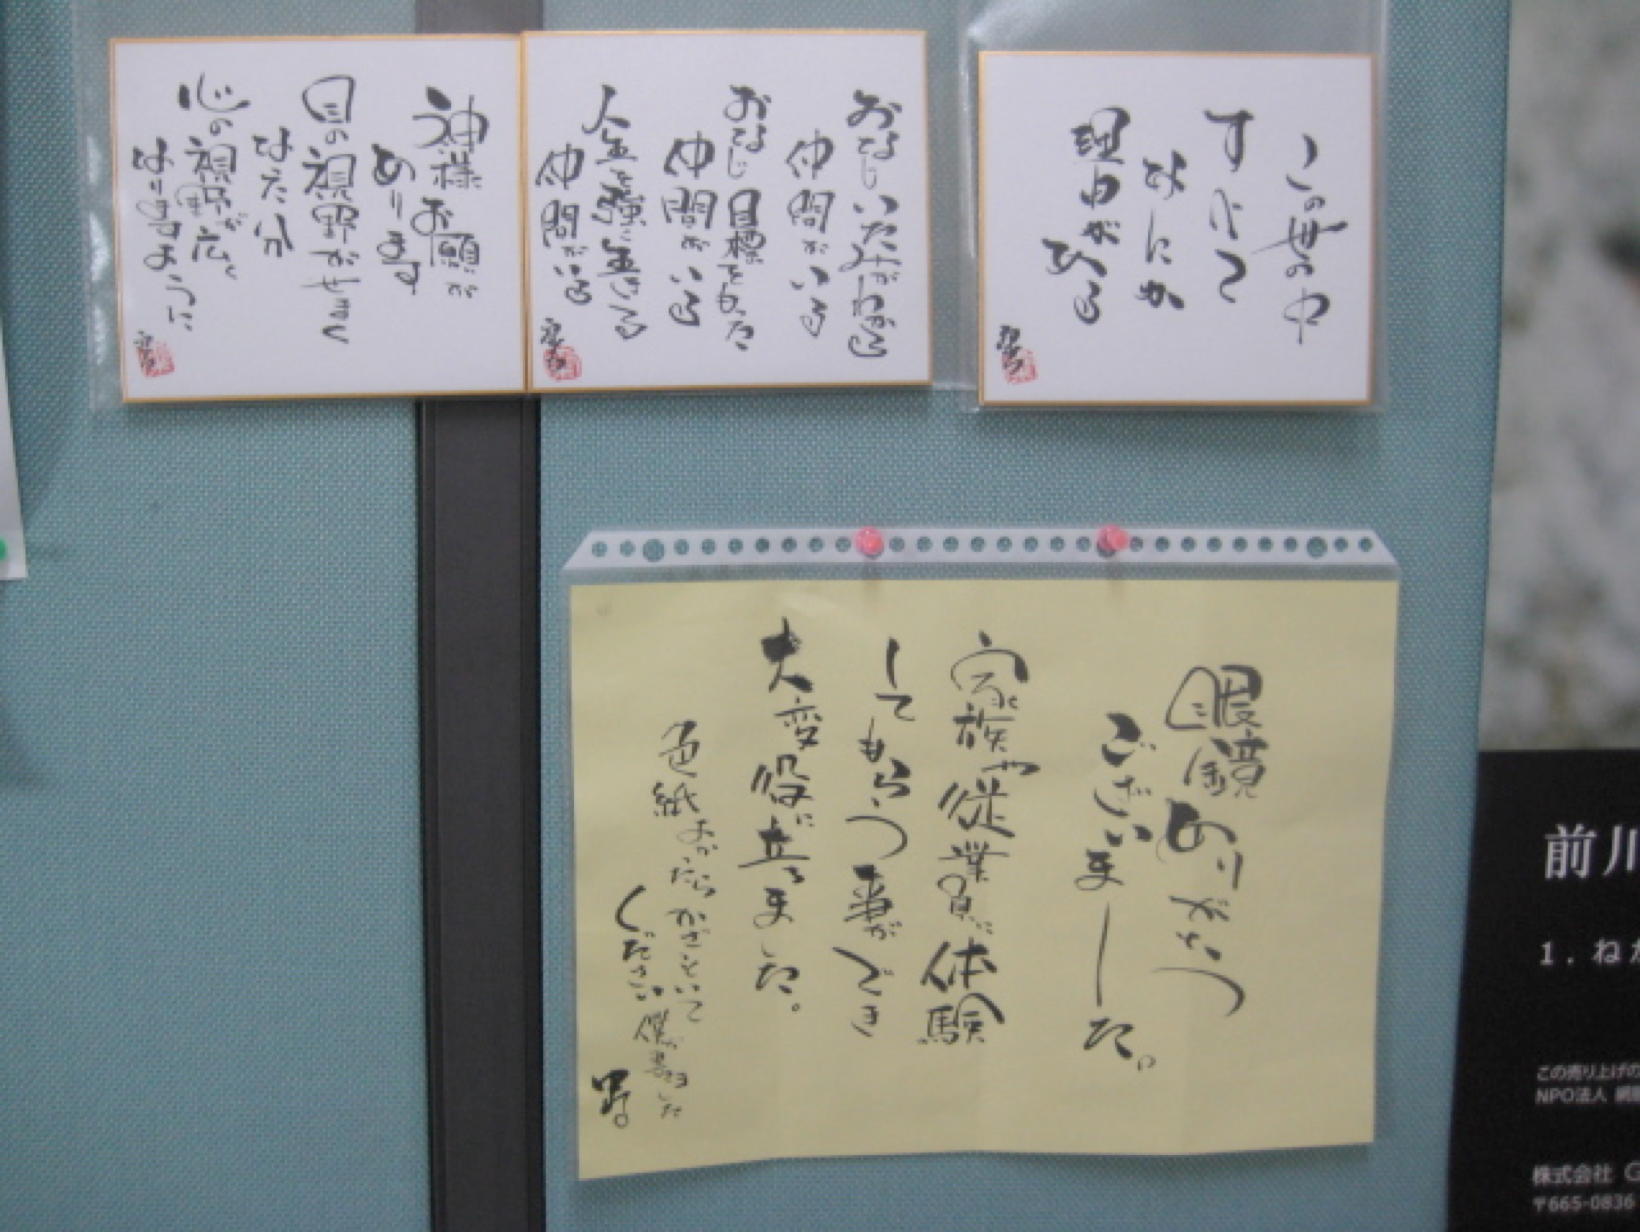 この世の中
すべて
なにか
理由がある
おなじいたみがわかる
仲間がいる
おなじ目標をもった
仲間がいる
人生を懸命に生きる
仲間がいる
神様お願いが
あります
目の視野がせまく
なった分
心の視野が広く
なりますように
眼鏡ありがとう
ございました。
家族や従業員に体験
してもらう事ができ
大変役に立ちました。
色紙よかったらかざっといて
ください僕が書きました
前川
1. ねが
この売り上げの
NPO法人 網膜
株式会社 G
〒665-0836